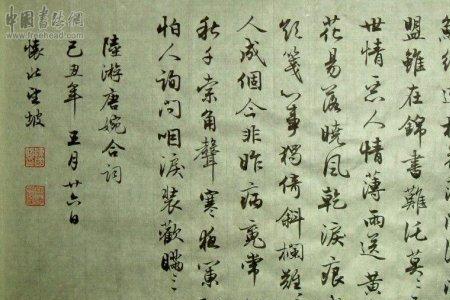 中国書法網
www.freehead.com
盟雖在錦書難托莫〻
世情惡人情薄雨送黃
花易落曉風乾淚痕
欲箋心事獨倚斜欄難
人成個今非昨病魂常
秋千索角聲寒夜闌
怕人詢問咽淚裝歡瞞〻
陸游唐婉合詞
己丑年五月廿六日